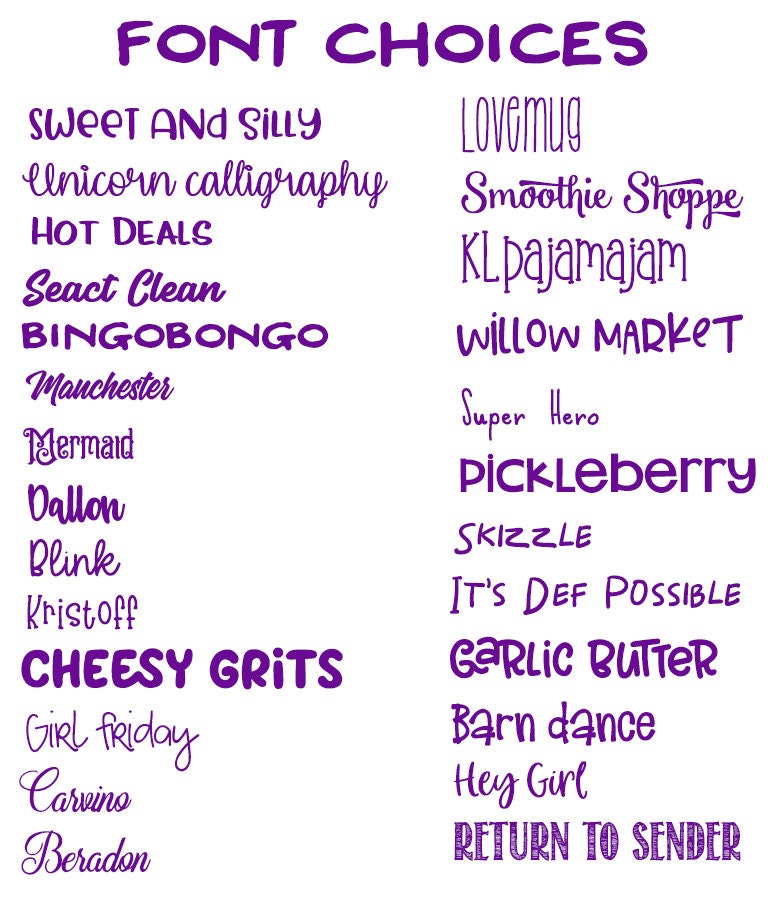 FONT CHOICES
Sweet And Silly
Unicorn calligraphy
HOT DEALS
Seact Clean
BINGOBONGO
Manchester
Mermaid
Dallon
Blink
Kristoff
CHEESY GRITS
Girl friday
Carvino
Beradon
Lovemug
Smoothie Shoppe
KLpajamajam
Willow Market
Super Hero
Pickleberry
SKIZZLE
IT'S DEF POSSIBLE
Garlic Butter
Barn dance
Hey Girl
RETURN TO SENDER